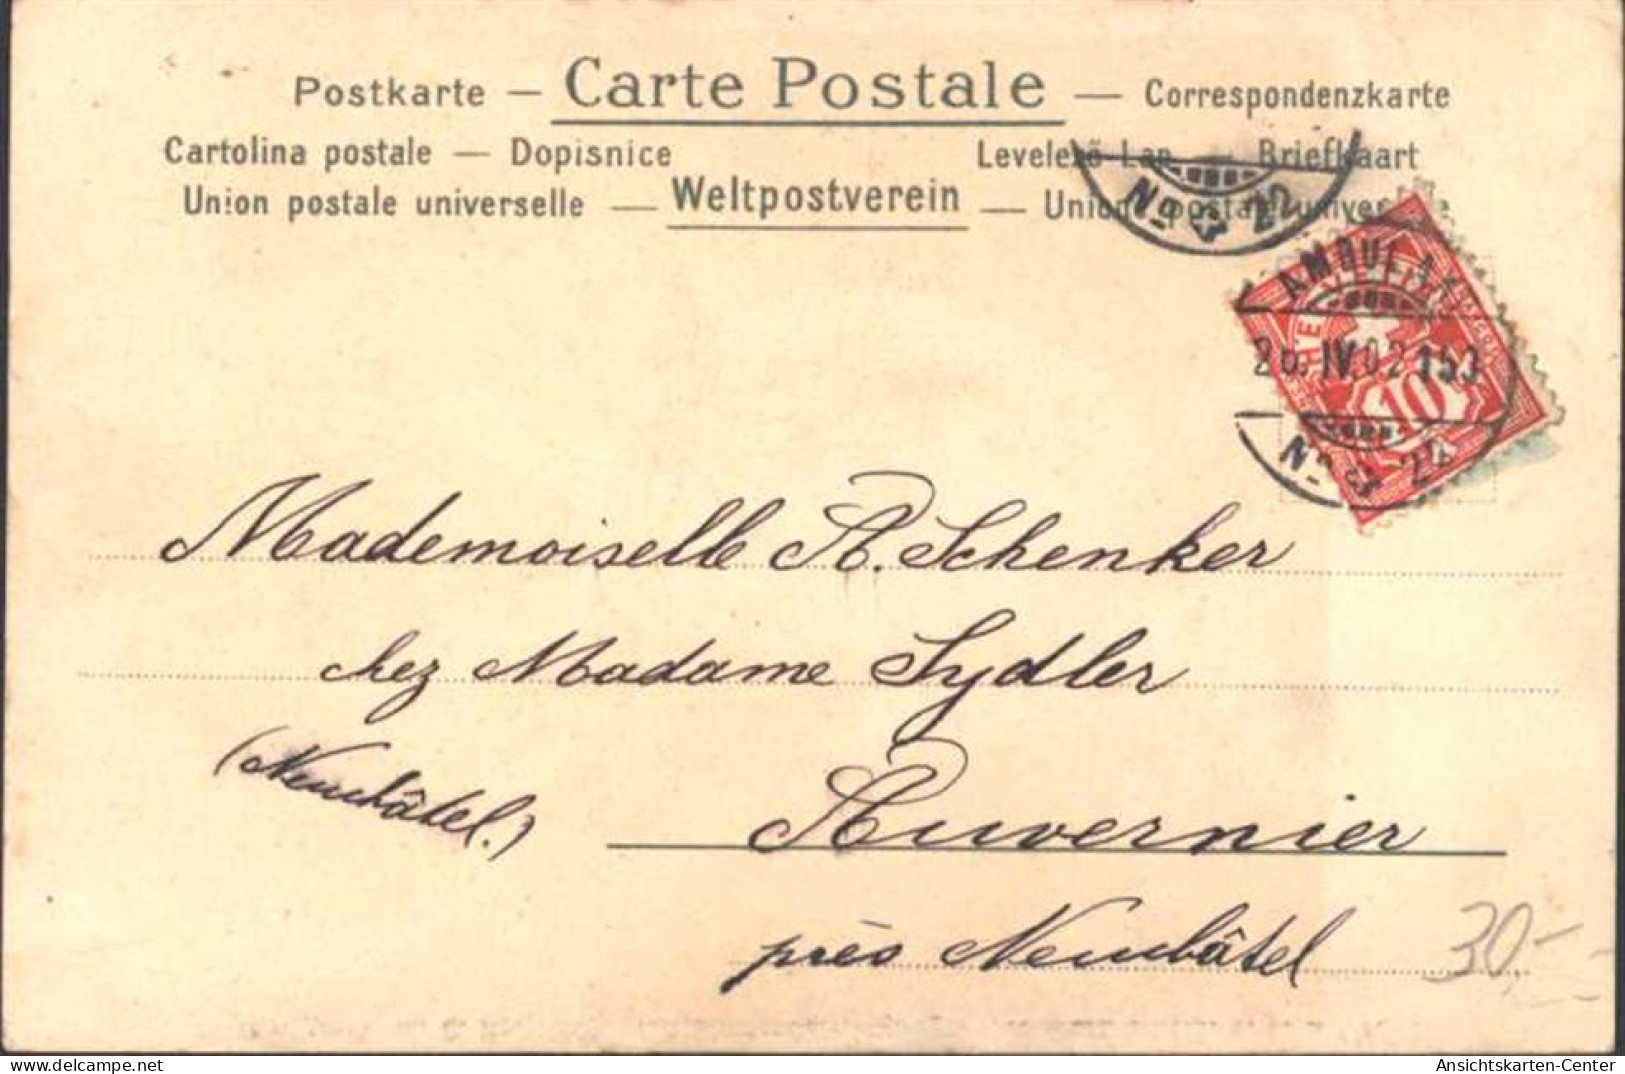 Postkarte — Carte Postale — Correspondenzkarte
Cartolina postale — Dopisnice Levelező Lap — Briefkaart
Union postale universelle — Weltpostverein — Union postale universelle
No 22
AMBULANT
IV.02 153
10
No 22
Mademoiselle A. Schenker
chez Madame Sydler
(Neuchâtel.)
Auvernier
près Neuchâtel
30,-
delcampe.net
Ansichtskarten-Center